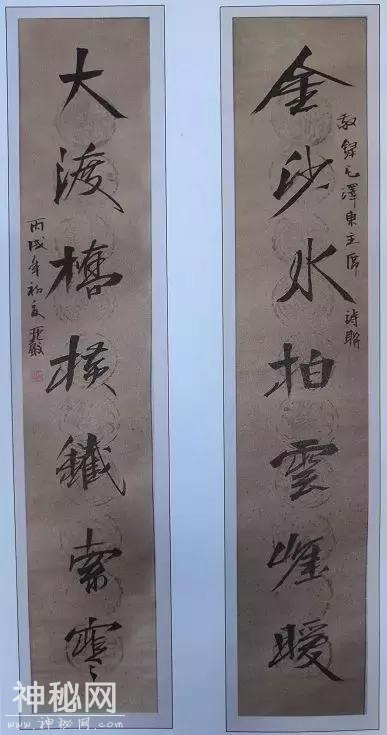 金沙水拍雲崖暖
敬錄毛澤東主席 詩聯
大渡橋橫鐵索寒
丙戌年初夏
神秘网
www.神秘网.com